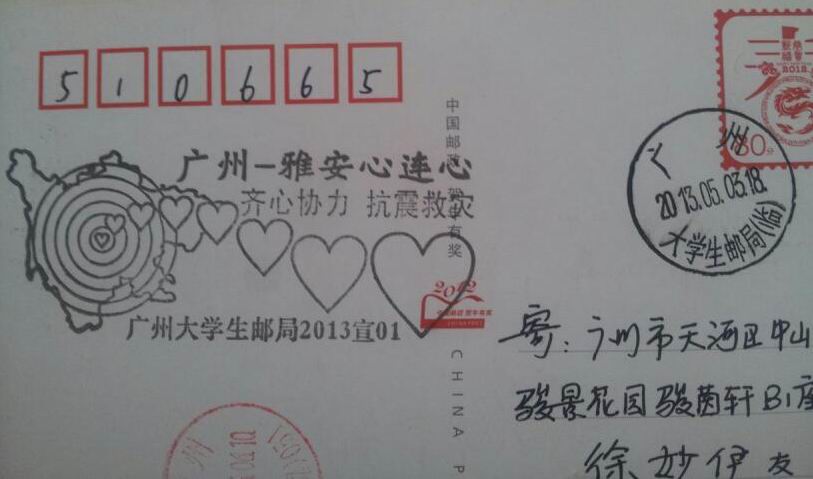 510665
中国邮政 贺年有奖
广州-雅安心连心
齐心协力 抗震救灾
广州大学生邮局2013宣01
2012
中国邮政 贺年有奖
CHINA POST
CHINA P
2012
80分
广州
2013.05.03.18
大学生邮局(临)
寄:广州市天河区中山
骏景花园骏茵轩B1座
徐妙伊 友
州